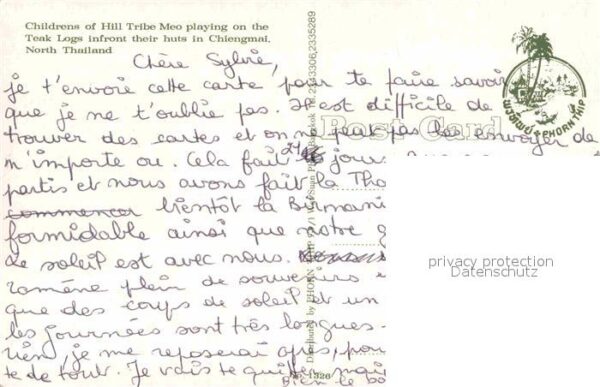 Childrens of Hill Tribe Meo playing on the
Teak Logs infront their huts in Chiengmai,
North Thailand
Post Card
PHORN TRIP
Chère Sylvie,
je t'envoie cette carte, pour te faire savoir
que je ne t'oublie pas. Il est difficile de
trouver des cartes et on ne peut pas les envoyer de
n'importe ou. Cela fait 24 jour
partis et nous avons fait la Tha
commencer bientôt la Birmani
formidable ainsi que notre g
Le soleil est avec nous.
ramène plein de souvenirs
que des coups de soleil et un
les journées sont très longues
rien, je me reposerai après, pou
te de tout. Je vais te quitter, mai
Bien le bo
Distributed by PHORN
Bangkok Tel. 2333306,2335289
No. 1326
privacy protection
Datenschutz